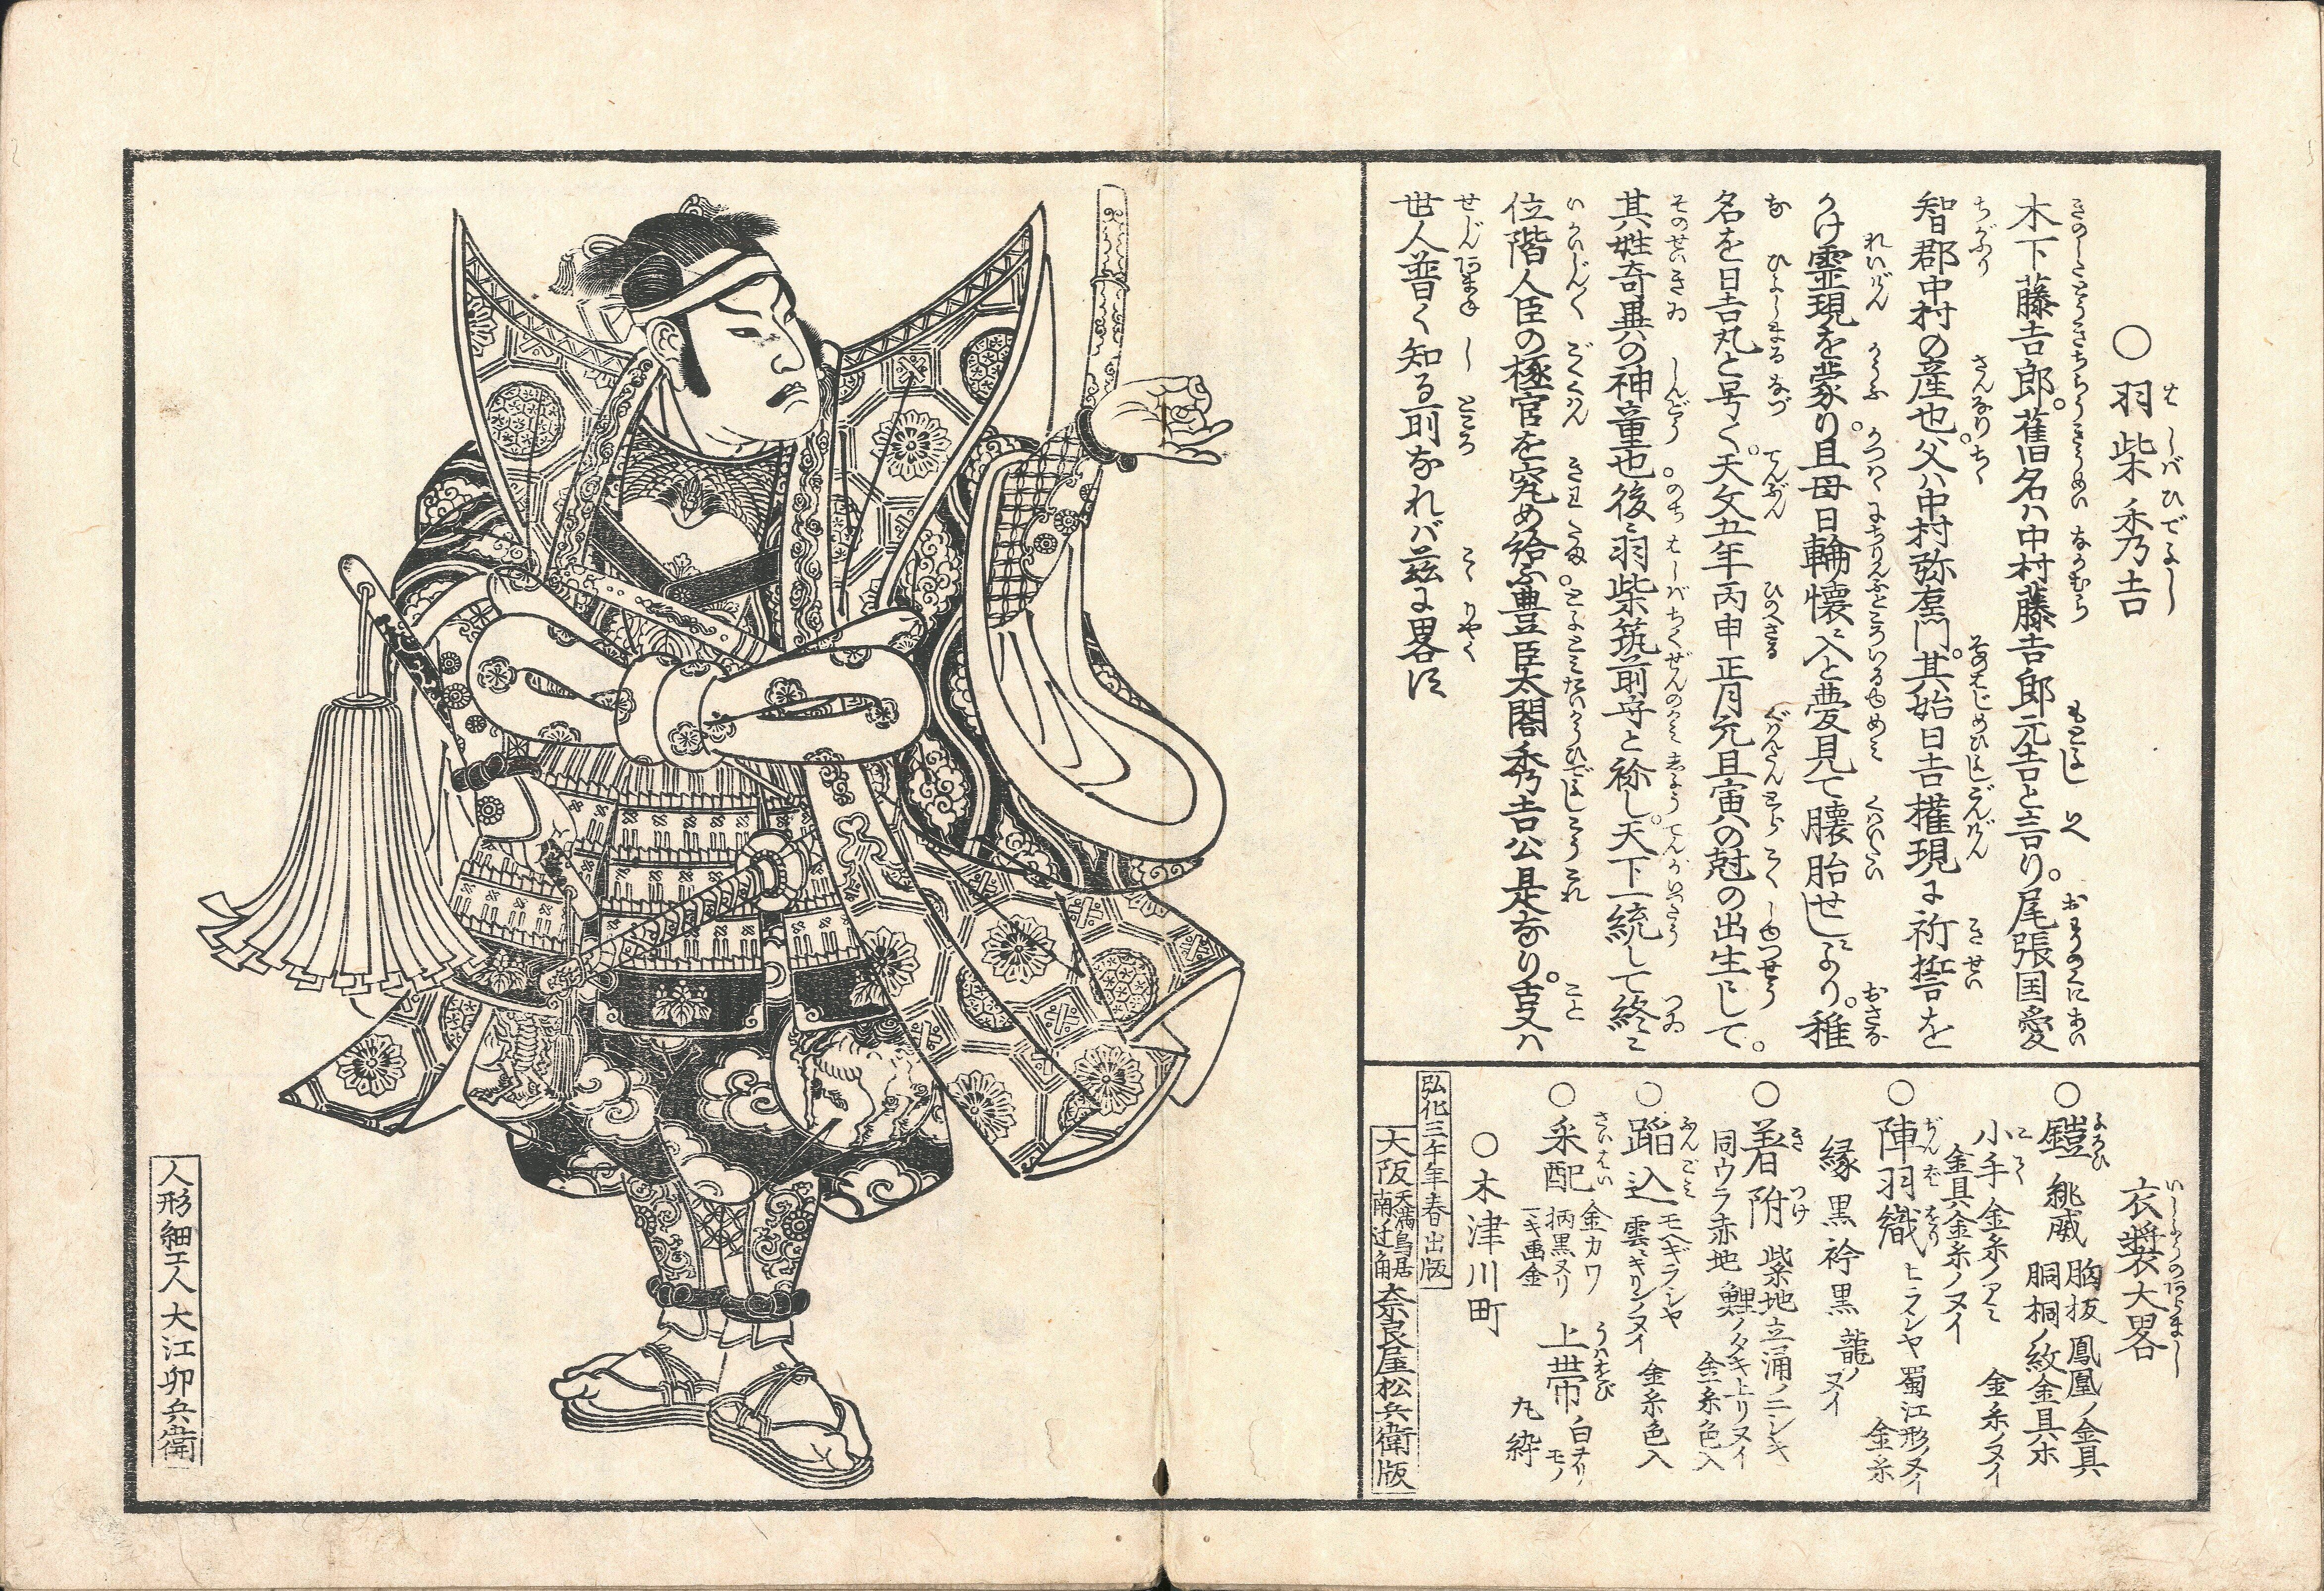 ○羽柴秀吉
木下藤吉郎。舊名ハ中村藤吉郎元吉と言り。尾張国愛
智郡中村の産也。父ハ中村弥右衛門。其始日吉権現に祈誓を
かけ霊現を蒙り。且母日輪懐ニ入と夢見て懐胎せしより。稚
名を日吉丸と号く。天文五年丙申正月元旦寅の尅の出生にして。
其姓奇異の神童也。後ニ羽柴筑前守と称し。天下一統して終ニ
位階人臣の極官を究め給ふ豊臣太閤秀吉公是なり。古又ハ
世人普く知る所なれバ茲に畧ス
衣裳大畧
○鎧 緋威 胸板鳳凰ノ金具
胴桐ノ紋金具ホ
小手 金糸ノアミ 金糸ノヌイ
金具金糸ノヌイ
○陣羽織 ヒラシヤ 蜀江形ノヌイ 金糸
縁黒 衿黒 龍ノヌイ
○着附 紫地立涌ノニシキ
同ウラ赤地 鯉ノタキ上リヌイ 金糸色入
○踏込 モヘギラシヤ
雲ニキリンノヌイ 金糸色入
○采配 金カワ
柄黒ヌリ
一キ画金
上帯 白ヲリモノ
丸絎
○木津川町
弘化三午年春出版
大阪 天満鳥居
南辻角 奈良屋松兵衛版
人形細工人 大江卯兵衛